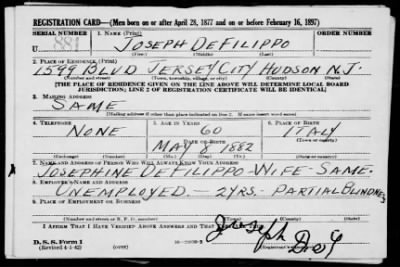 REGISTRATION CARD—(Men born on or after April 28, 1877 and on or before February 16, 1897)
SERIAL NUMBER 1. NAME (Print) ORDER NUMBER
U 881 JOSEPH DEFILIPPO
2. PLACE OF RESIDENCE (Print)
1596 BLVD JERSEY CITY HUDSON N.J.
(Number and street) (Town, township, village, or city) (County) (State)
[THE PLACE OF RESIDENCE GIVEN ON THE LINE ABOVE WILL DETERMINE LOCAL BOARD
JURISDICTION; LINE 2 OF REGISTRATION CERTIFICATE WILL BE IDENTICAL]
3. MAILING ADDRESS
SAME
[Mailing address if other than place indicated on line 2. If same insert word same]
4. TELEPHONE 5. AGE IN YEARS 6. PLACE OF BIRTH
NONE 60 ITALY
DATE OF BIRTH (Town or county)
MAY 8 1882
(Exchange) (Number) (Mo.) (Day) (Yr.) (State or country)
7. NAME AND ADDRESS OF PERSON WHO WILL ALWAYS KNOW YOUR ADDRESS
JOSEPHINE DEFILIPPO-WIFE-SAME.
8. EMPLOYER'S NAME AND ADDRESS
UNEMPLOYED.—2YRS.-PARTIAL BLINDNESS
9. PLACE OF EMPLOYMENT OR BUSINESS
(Number and street or R. F. D. number) (Town) (County) (State)
I AFFIRM THAT I HAVE VERIFIED ABOVE ANSWERS AND THAT
Joseph
D. S. S. Form 1
(Revised 4-1-42) (over)